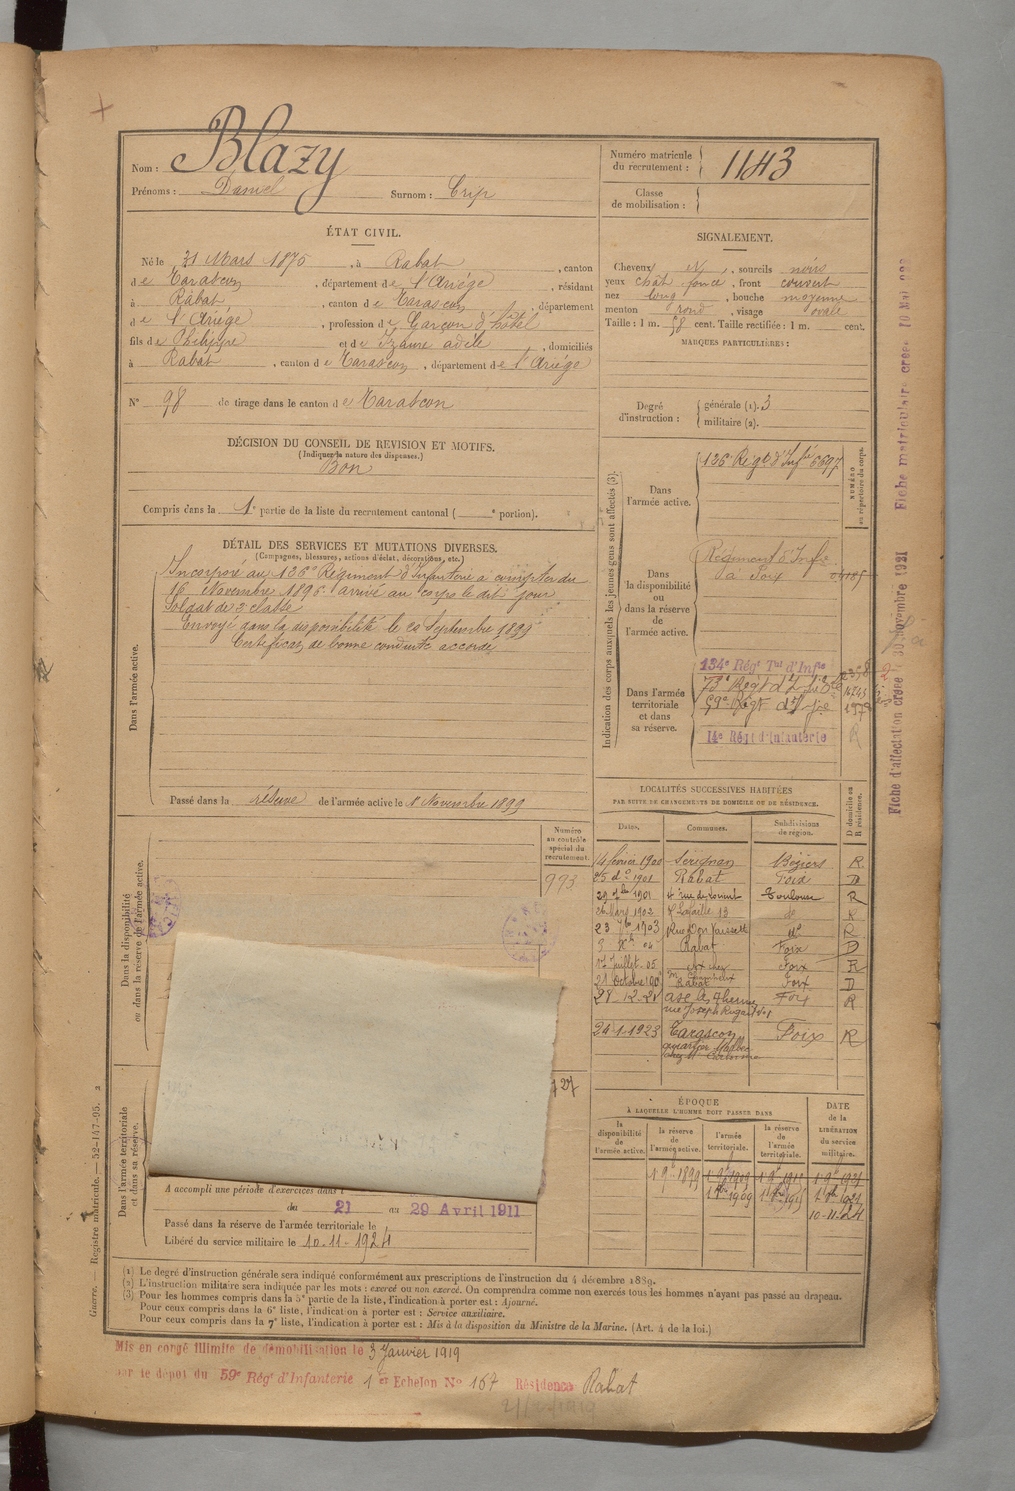 Nom : Blazy
Prénoms : Daniel Surnom : Crip
Numéro matricule du recrutement : 1143
Classe de mobilisation :
ÉTAT CIVIL.
Né le 31 Mars 1875, à Rabat, canton
de Tarascon, département de l'Ariége, résidant
à Rabat, canton de Tarascon, département
de l'Ariége, profession de Garçon d'hôtel
fils de Philippe et de Izaure adèle, domiciliés
à Rabat, canton de Tarascon, département de l'Ariége
N° 98 de tirage dans le canton de Tarascon
DÉCISION DU CONSEIL DE REVISION ET MOTIFS.
(Indiquer la nature des dispenses.)
Bon
Compris dans la 1e partie de la liste du recrutement cantonal ( e portion).
SIGNALEMENT.
Cheveux N, sourcils noirs
yeux chât foncé, front couvert
nez long, bouche moyenne
menton rond, visage ovale
Taille : 1 m. 58 cent. Taille rectifiée : 1 m. cent.
MARQUES PARTICULIÈRES :
Degré d'instruction : générale (1). 3
militaire (2).
DÉTAIL DES SERVICES ET MUTATIONS DIVERSES.
(Campagnes, blessures, actions d'éclat, décorations, etc.)
Dans l'armée active.
Incorporé au 136e Régiment d'Infanterie a compter du
16 Novembre 1896. arrivé au corps le dit jour
Soldat de 2e classe
Envoyé dans la disponibilité le 20 Septembre 1899
Certificat de bonne conduite accordé
Passé dans la réserve de l'armée active le 1 Novembre 1899
Indication des corps auxquels les jeunes gens sont affectés (3).
NUMÉRO au répertoire du corps.
Dans l'armée active.
136e Régt d'Infie 6697
Dans la disponibilité ou dans la réserve de l'armée active.
Régiment d'Infie
à Foix
Dans l'armée territoriale et dans sa réserve.
134e Régt Tal d'Infie
59e Régt d'Infie
14e Régt d'Infanterie
R
LOCALITÉS SUCCESSIVES HABITÉES
PAR SUITE DE CHANGEMENTS DE DOMICILE OU DE RÉSIDENCE.
Dates. Communes. Subdivisions de région. D domicile ou R résidence.
14 février 1900 Sérignan Béziers R
25 do 1901 Rabat Foix D
29 1901 Toulouse R
Mars 1902 R Lafaille 13 do R
23 1903 do R
Rabat Foix D
1er juillet 05 Foix R
21 Octobre Rabat Foix D
28-12-21 Foix R
24-1-1923 Tarascon Foix R
Numéro au contrôle spécial du recrutement.
993
Dans la disponibilité ou dans la réserve de l'armée active.
Dans l'armée territoriale et dans sa réserve.
A accompli une période d'exercices dans l
du 21 au 29 Avril 1911
Passé dans la réserve de l'armée territoriale le
Libéré du service militaire le 10-11-1924
ÉPOQUE
À LAQUELLE L'HOMME DOIT PASSER DANS
la disponibilité de l'armée active.
la réserve de l'armée active.
l'armée territoriale.
la réserve de l'armée territoriale.
DATE de la LIBÉRATION du service militaire.
10-11-24
(1) Le degré d'instruction générale sera indiqué conformément aux prescriptions de l'instruction du 4 décembre 1889.
(2) L'instruction militaire sera indiquée par les mots : exercé ou non exercé. On comprendra comme non exercés tous les hommes n'ayant pas passé au drapeau.
(3) Pour les hommes compris dans la 5e partie de la liste, l'indication à porter est : Ajourné.
Pour ceux compris dans la 6e liste, l'indication à porter est : Service auxiliaire.
Pour ceux compris dans la 7e liste, l'indication à porter est : Mis à la disposition du Ministre de la Marine. (Art. 4 de la loi.)
Guerre. — Registre matricule. — 52-147-95. 2
Mis en congé illimité de démobilisation le 3 Janvier 1919
par le dépôt du 59e Régt d'Infanterie 1er Echelon No 167 Résidence Rabat
Fiche d'affectation créée 30 novembre 1921 Fiche matriculaire créée 10 Mai